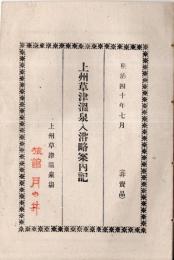 明治四十年七月
（非賣品）
上州草津溫泉入浴略案內記
上州草津溫泉場
旅舘 月の井